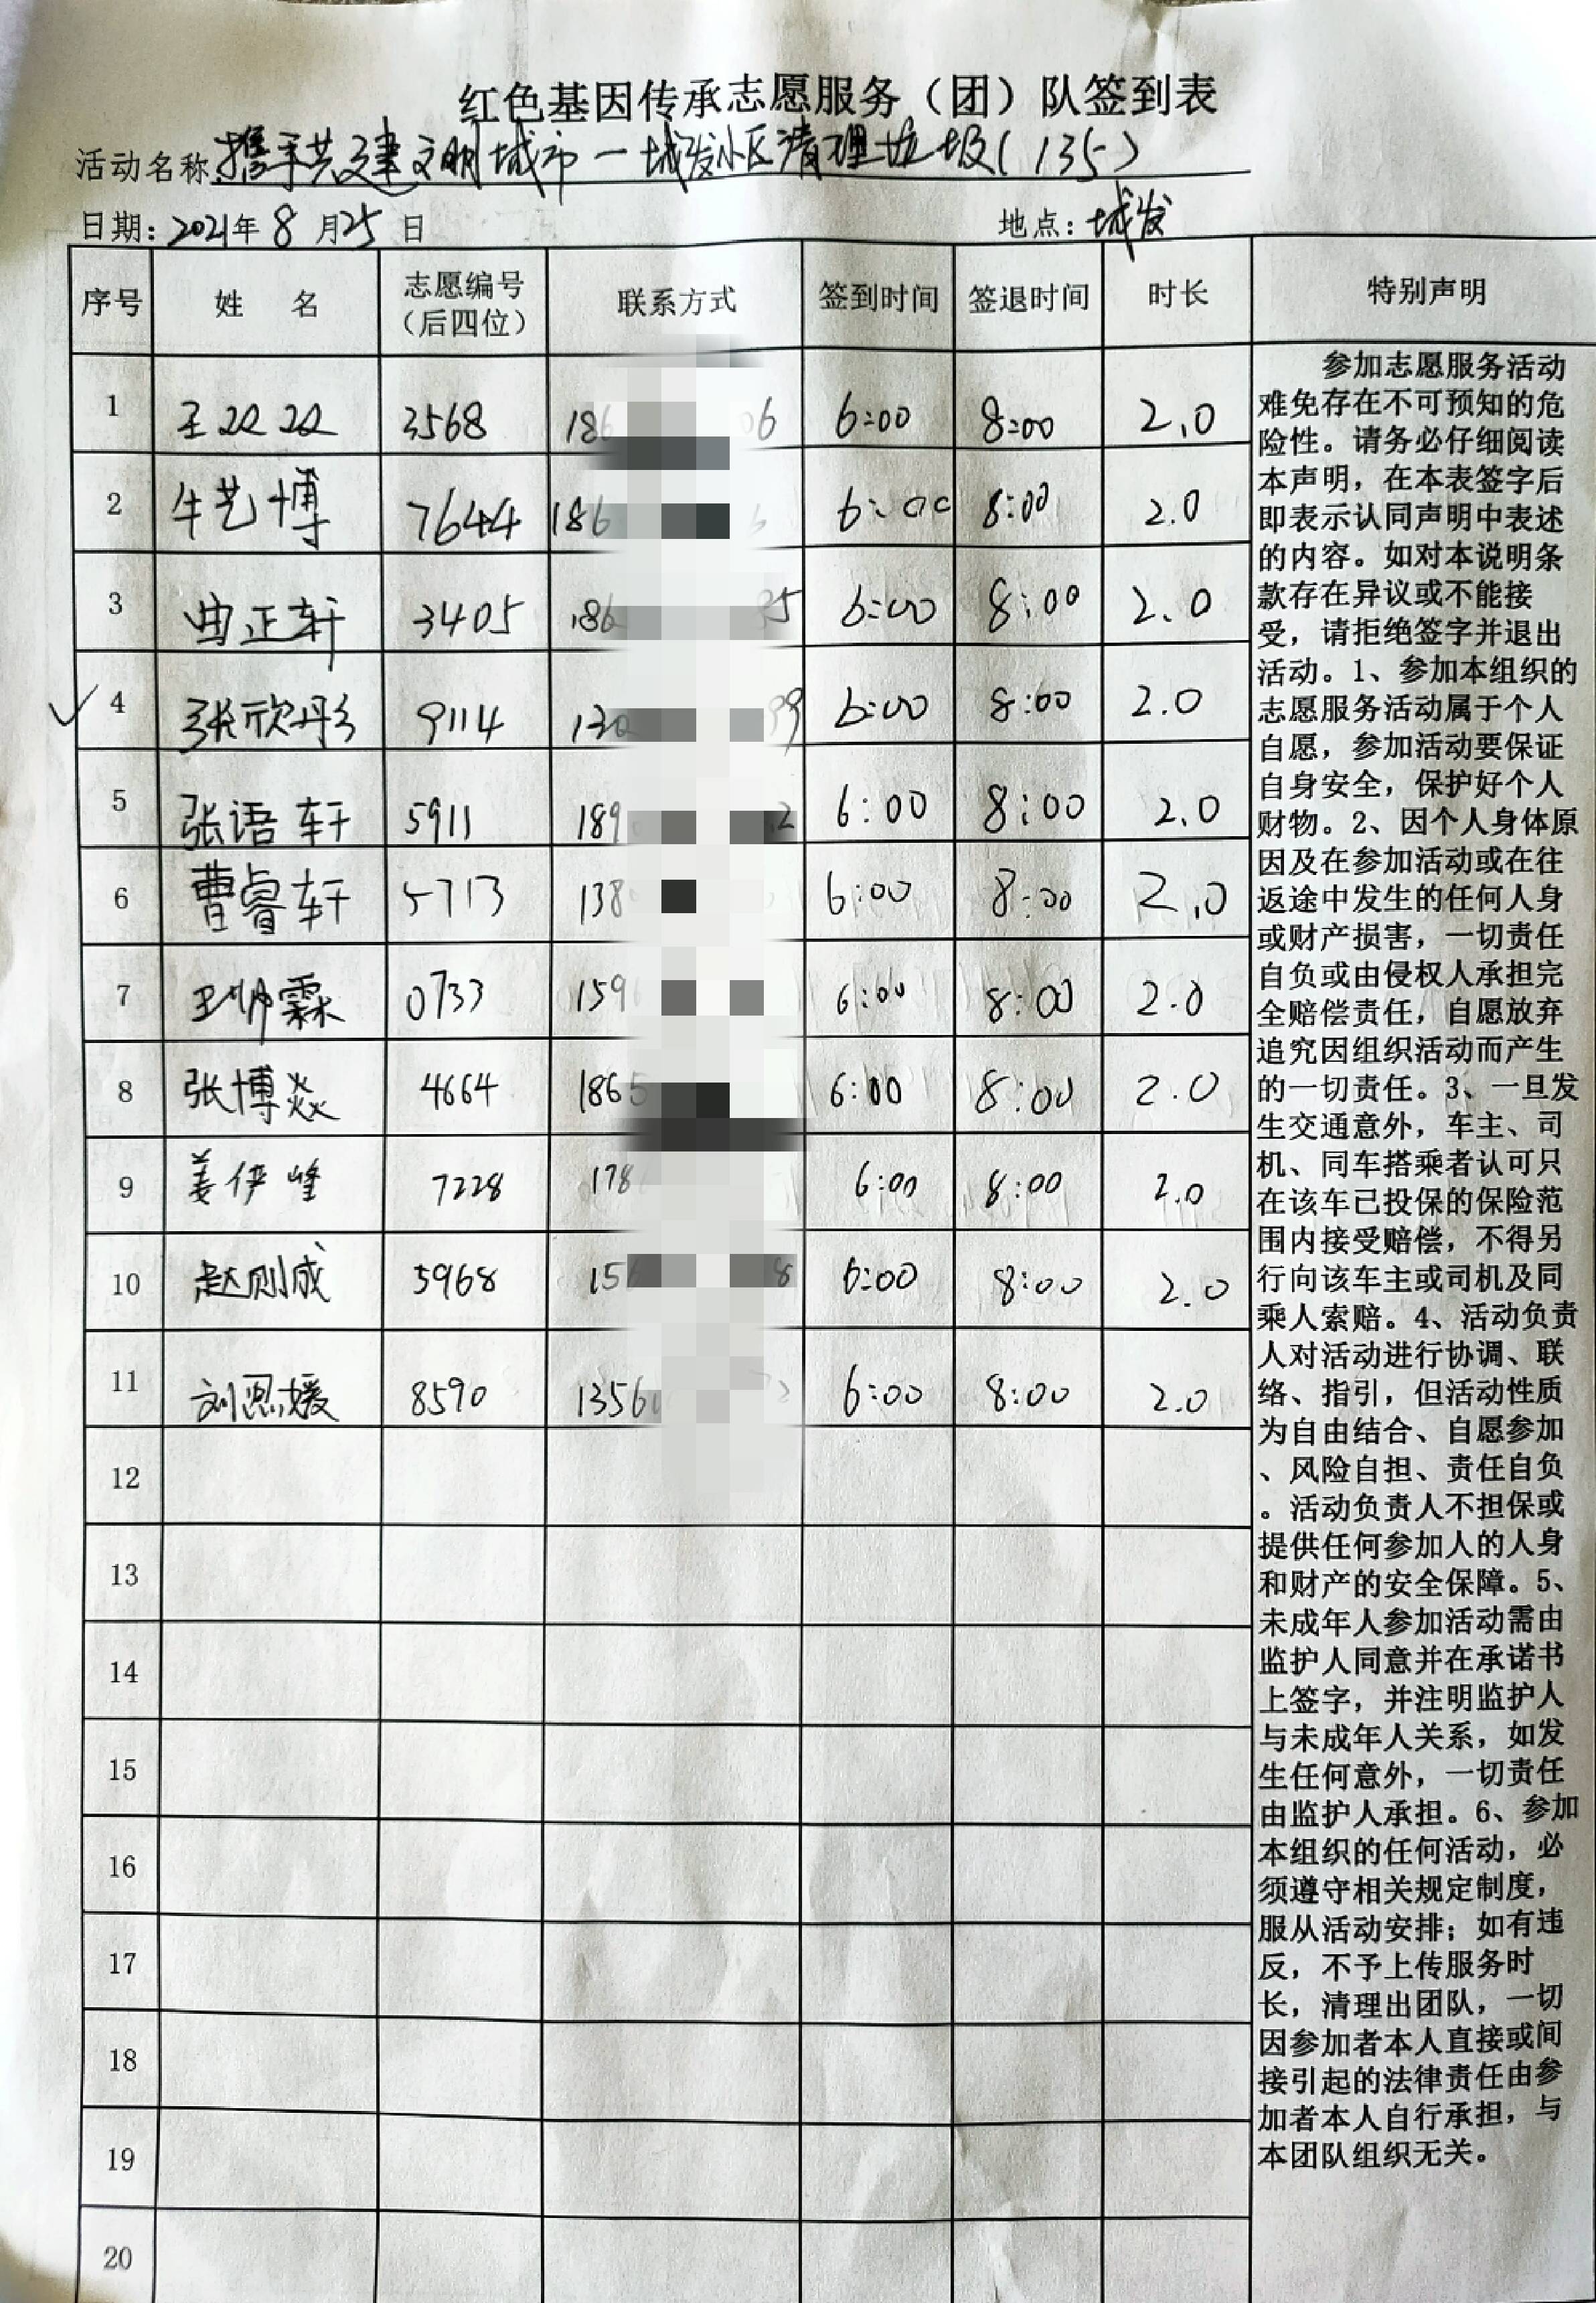 红色基因传承志愿服务（团）队签到表
活动名称 携手共建文明城市一城发小区清理垃圾(135)
日期：2021年8月25日 地点：城发
序号 姓 名 志愿编号（后四位） 联系方式 签到时间 签退时间 时长 特别声明
1 王双双 3568 186 06 6:00 8:00 2.0
2 牛艺博 7644 186 6:00 8:00 2.0
3 曲正轩 3405 186 35 6:00 8:00 2.0
√ 4 张欣彤 9114 130 99 6:00 8:00 2.0
5 张语轩 5911 189 2 6:00 8:00 2.0
6 曹睿轩 5713 138 6:00 8:00 2.0
7 王帅霖 0733 159 6:00 8:00 2.0
8 张博焱 4664 1865 6:00 8:00 2.0
9 姜伊峰 7228 178 6:00 8:00 2.0
10 赵则成 5968 156 8 6:00 8:00 2.0
11 刘恩媛 8590 1356 6:00 8:00 2.0
12
13
14
15
16
17
18
19
20
参加志愿服务活动
难免存在不可预知的危
险性。请务必仔细阅读
本声明，在本表签字后
即表示认同声明中表述
的内容。如对本说明条
款存在异议或不能接
受，请拒绝签字并退出
活动。1、参加本组织的
志愿服务活动属于个人
自愿，参加活动要保证
自身安全，保护好个人
财物。2、因个人身体原
因及在参加活动或在往
返途中发生的任何人身
或财产损害，一切责任
自负或由侵权人承担完
全赔偿责任，自愿放弃
追究因组织活动而产生
的一切责任。3、一旦发
生交通意外，车主、司
机、同车搭乘者认可只
在该车已投保的保险范
围内接受赔偿，不得另
行向该车主或司机及同
乘人索赔。4、活动负责
人对活动进行协调、联
络、指引，但活动性质
为自由结合、自愿参加
、风险自担、责任自负
。活动负责人不担保或
提供任何参加人的人身
和财产的安全保障。5、
未成年人参加活动需由
监护人同意并在承诺书
上签字，并注明监护人
与未成年人关系，如发
生任何意外，一切责任
由监护人承担。6、参加
本组织的任何活动，必
须遵守相关规定制度，
服从活动安排；如有违
反，不予上传服务时
长，清理出团队，一切
因参加者本人直接或间
接引起的法律责任由参
加者本人自行承担，与
本团队组织无关。